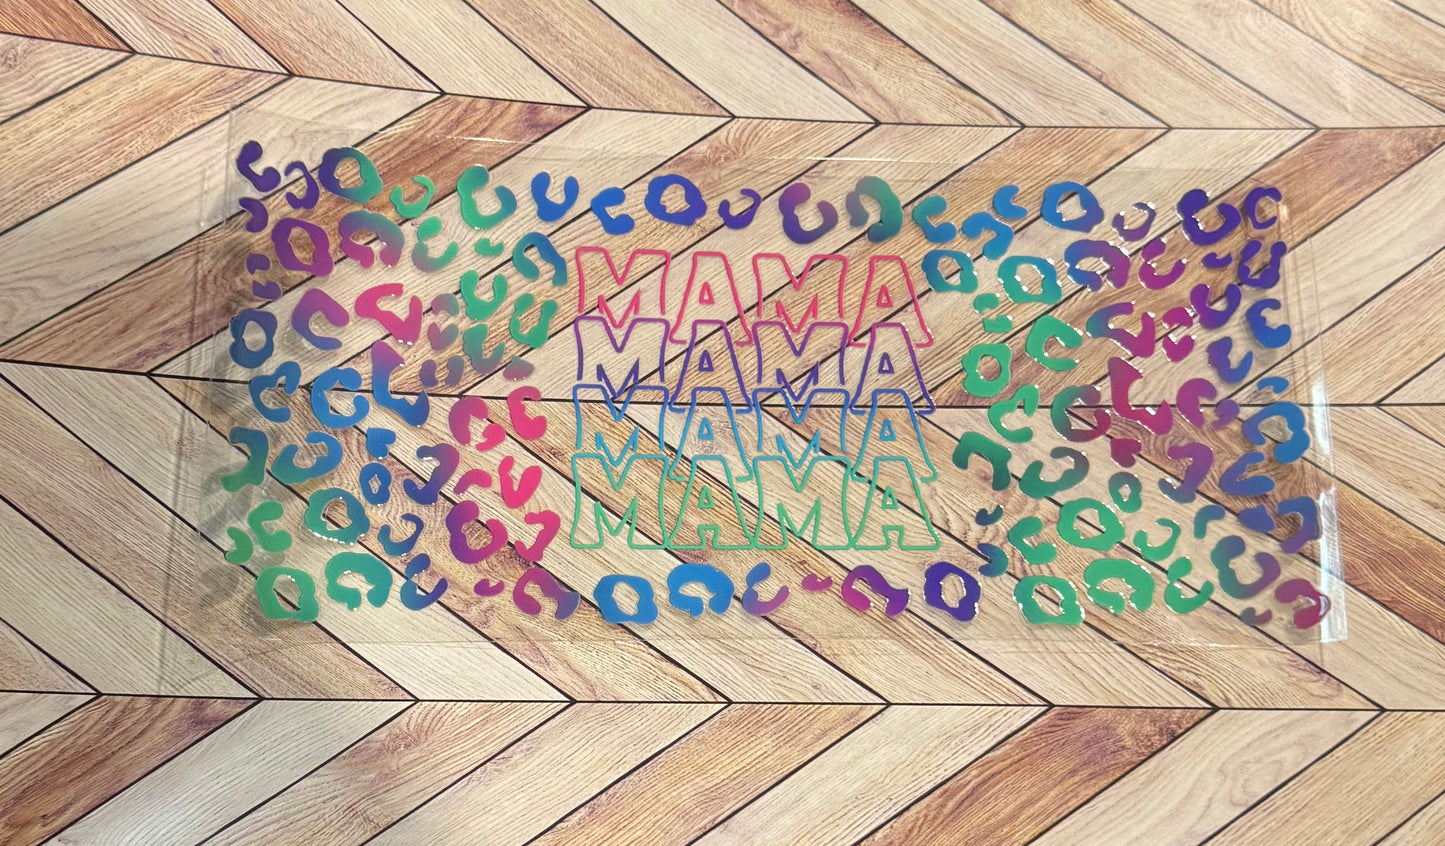 MAMA
MAMA
MAMA
MAMA